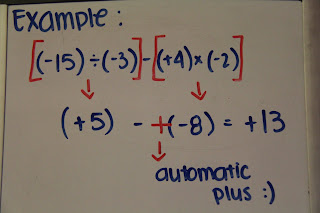 Example:
[(-15)÷(-3)]-[(+4)×(-2)]
(+5) - +(-8) = +13
automatic
plus :)